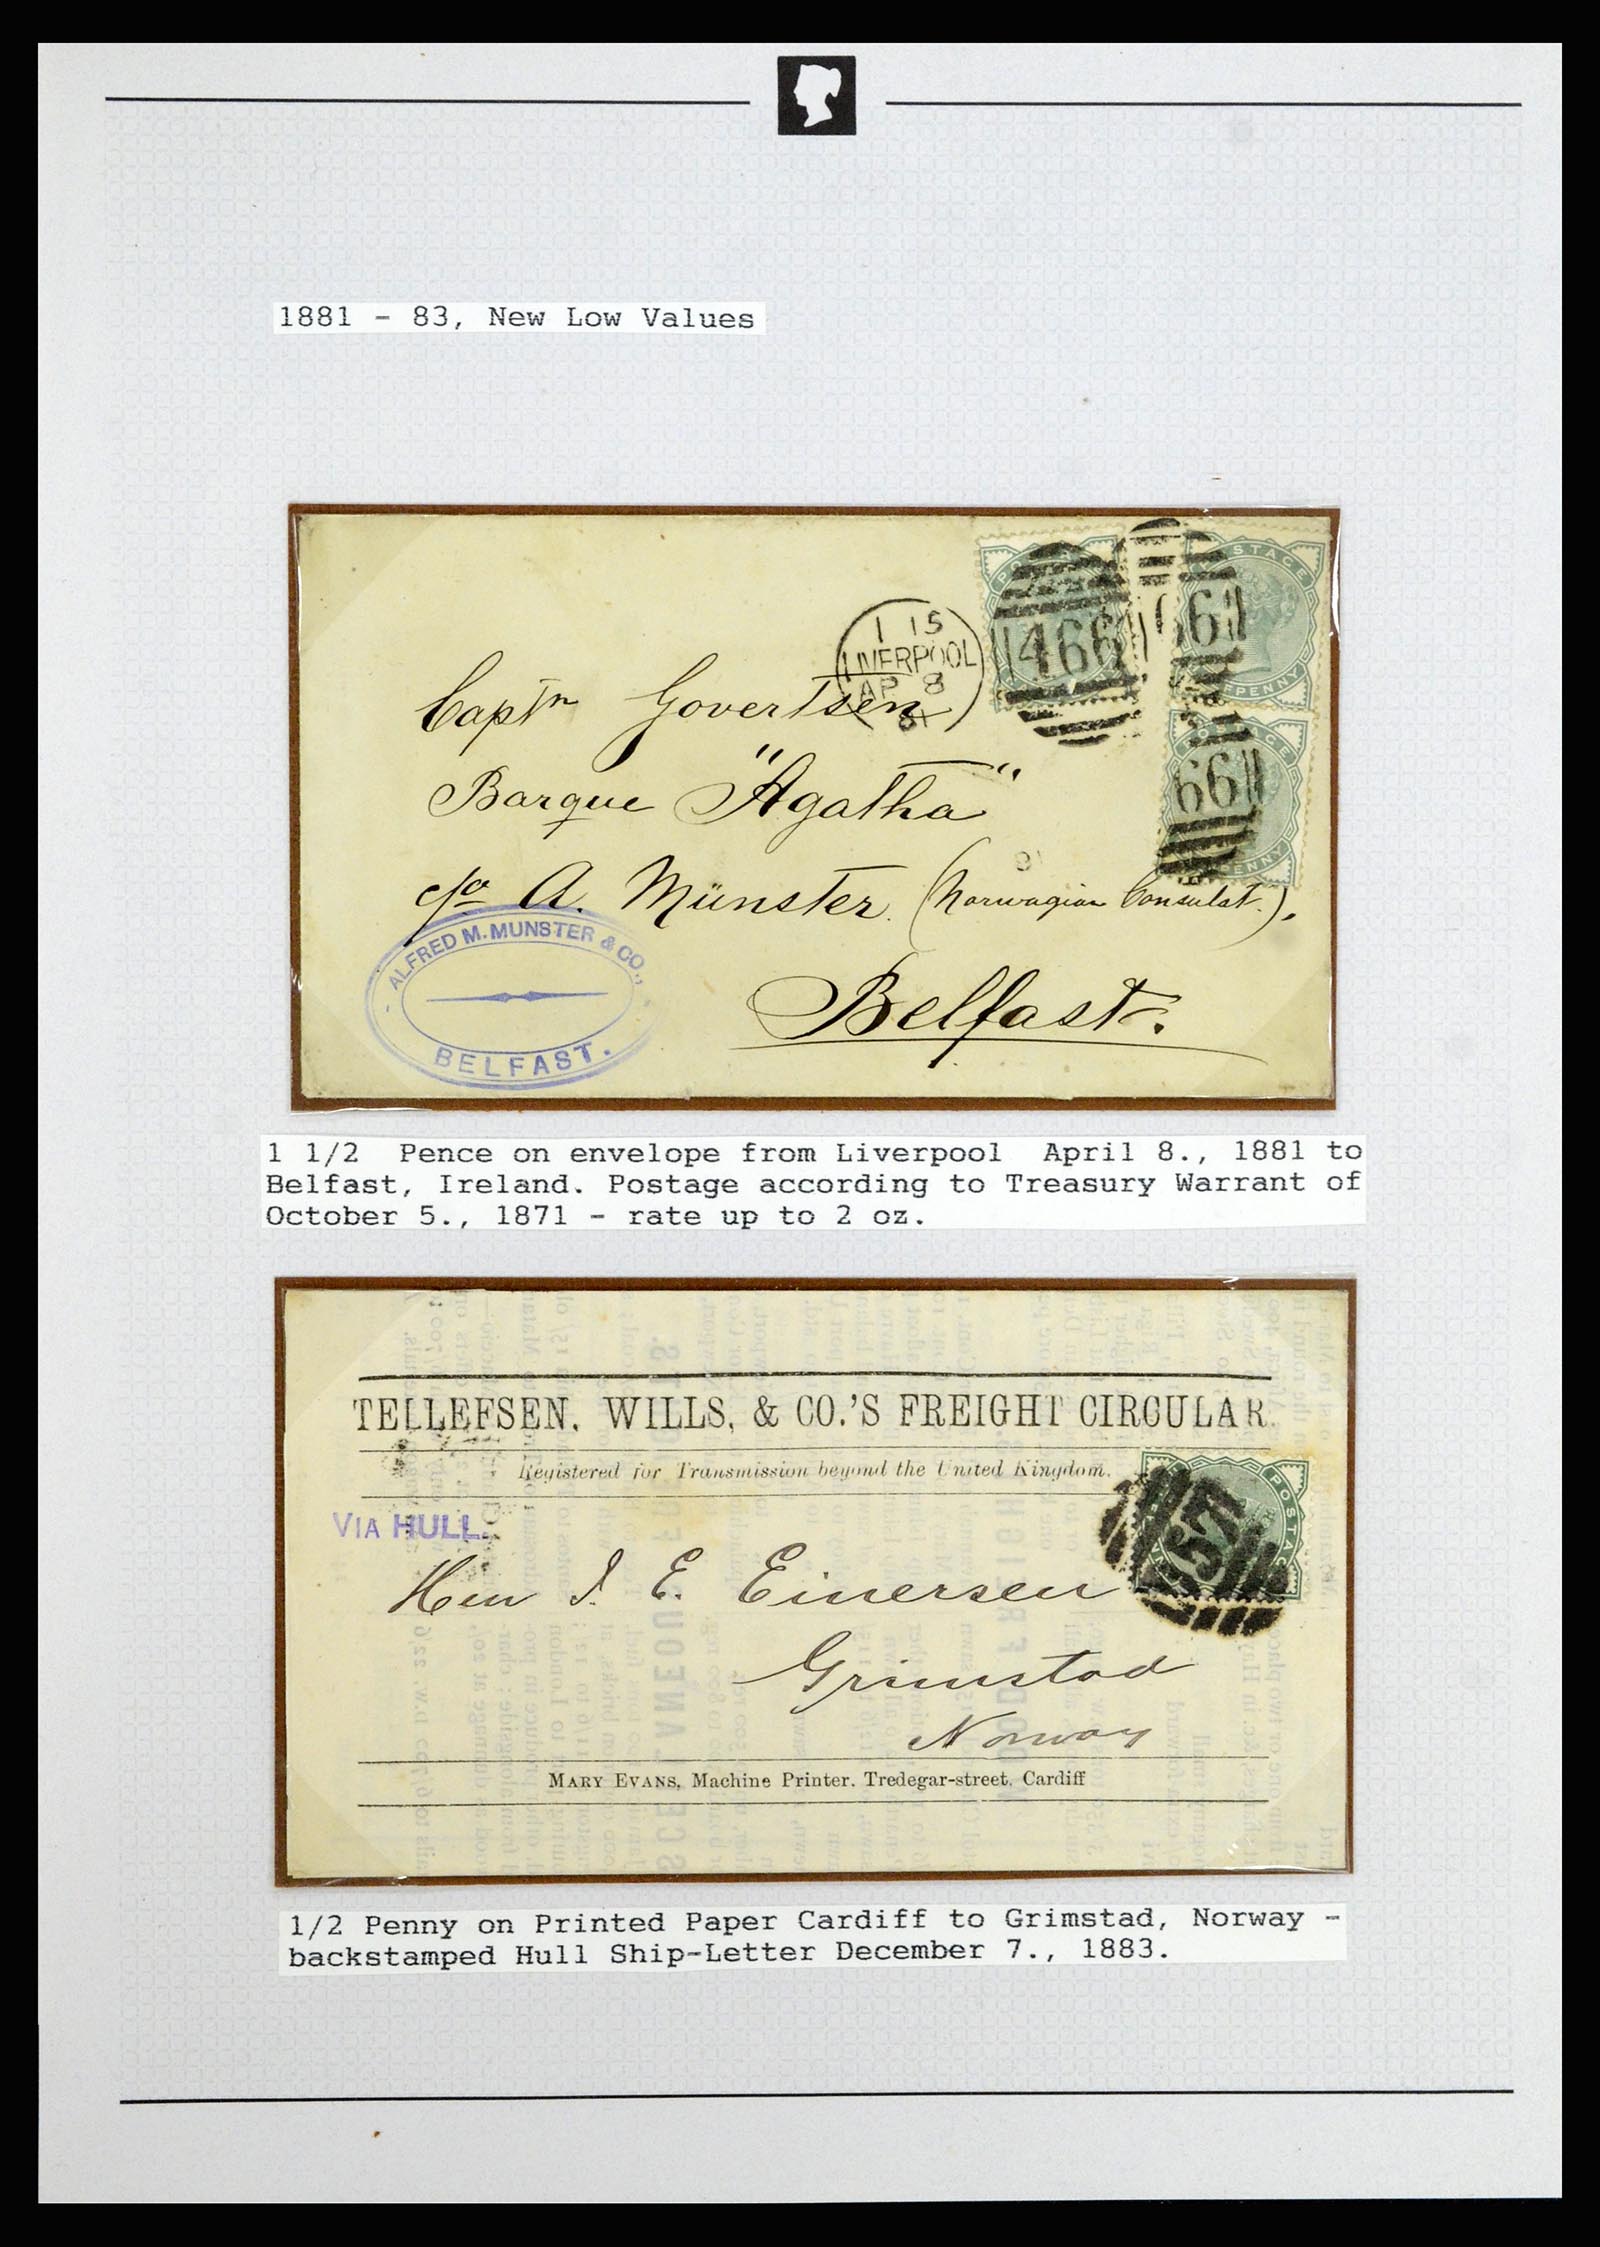 1881 - 83, New Low Values
POSTAGE
1 15
LIVERPOOL
AP 8
81
466
Captn Govertsen
Barque "Agatha"
c/o A. Münster (Norwegian Consulat.),
Belfast.
ALFRED M. MUNSTER & CO.,
BELFAST.
1 1/2 Pence on envelope from Liverpool April 8., 1881 to
Belfast, Ireland. Postage according to Treasury Warrant of
October 5., 1871 - rate up to 2 oz.
TELLEFSEN, WILLS, & CO.'S FREIGHT CIRCULAR.
Registered for Transmission beyond the United Kingdom.
VIA HULL.
Herr J. E. Einersen
Grimstad
Norway
MARY EVANS, Machine Printer, Tredegar-street, Cardiff
1/2 Penny on Printed Paper Cardiff to Grimstad, Norway -
backstamped Hull Ship-Letter December 7., 1883.